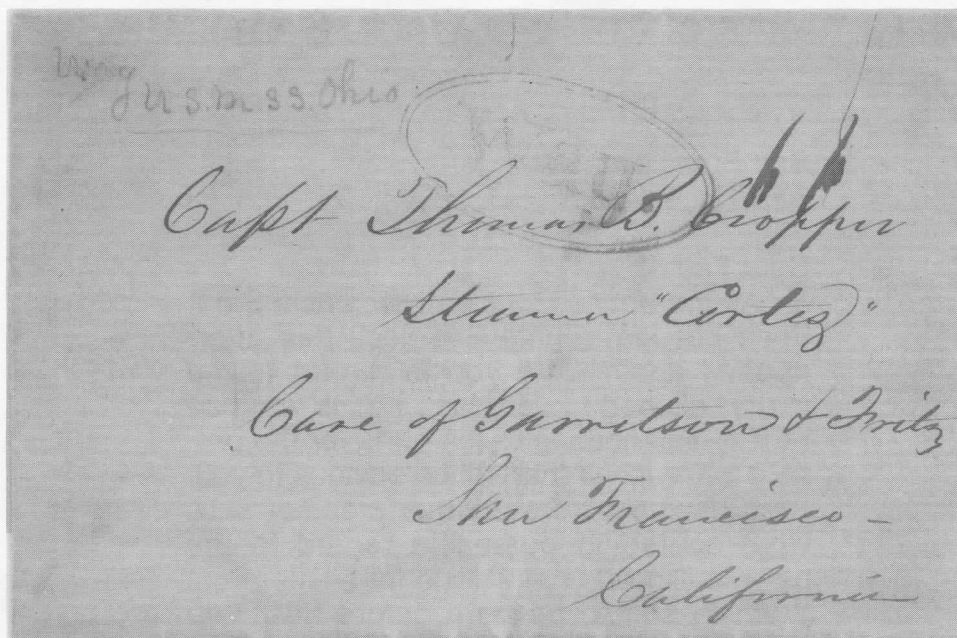 U.S.M.S.S. Ohio
Capt Thomas B. Cropper
Steamer "Cortez"
Care of Garretson & Fritz
San Francisco -
California